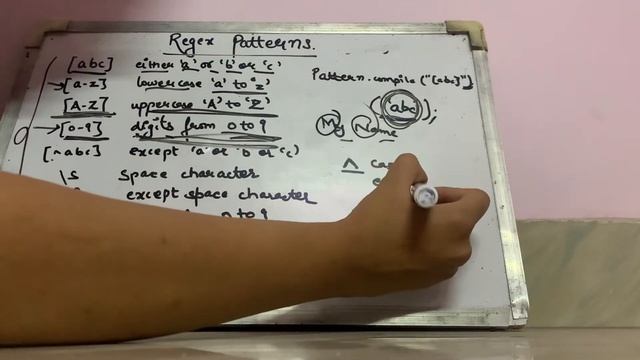 Regex Patterns.
[abc] either 'a' or 'b' or 'c'
[a-z] lowercase 'a' to 'z'
[A-Z] uppercase 'A' to 'Z'
[0-9] digits from 0 to 9
[^abc] except 'a' or 'b' or 'c'
\s space character
except space character
0 to 9
Pattern.compile("[abc]");
(abc);
My Name
^